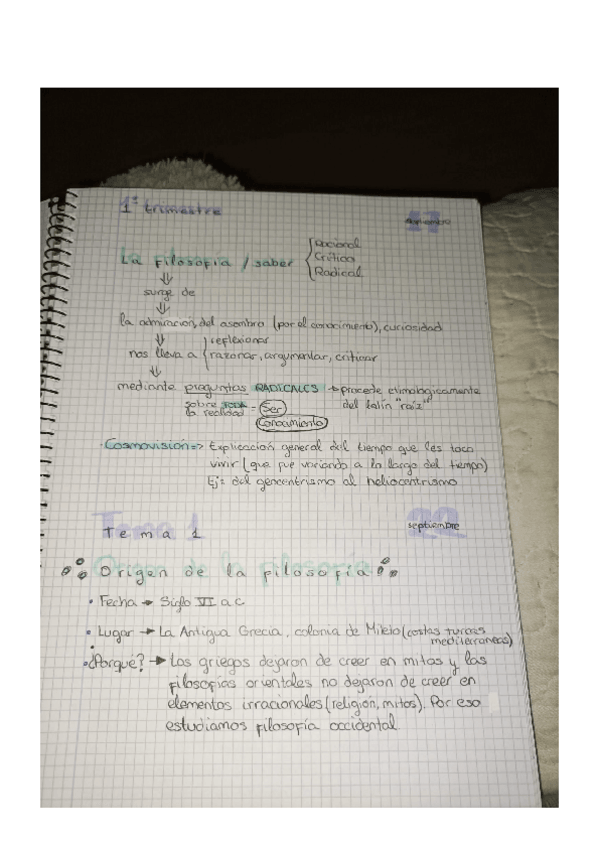 1º trimestre
17
La filosofía / saber
Racional
Crítico
Radical
surge de
la admiración, del asombro (por el conocimiento), curiosidad
nos lleva a
reflexionar
razonar, argumentar, criticar
mediante preguntas RADICALES → procede etimologicamente
del latín "raíz"
sobre TODA
la realidad = Ser
Conocimiento
· Cosmovisión => Explicación general del tiempo que les toco
vivir (que fue variando a lo largo del tiempo)
Ej: del geocentrismo al heliocentrismo
22
septiembre
Tema 1
Origen de la filosofía
• Fecha → Siglo VI a.c
• Lugar → La Antigua Grecia, colonia de Mileto (costas turcas
mediterraneas)
• ¿Porqué? → Los griegos dejaron de creer en mitos y las
filosofías orientales no dejaron de creer en
elementos irracionales (religión, mitos). Por eso
estudiamos filosofía occidental.